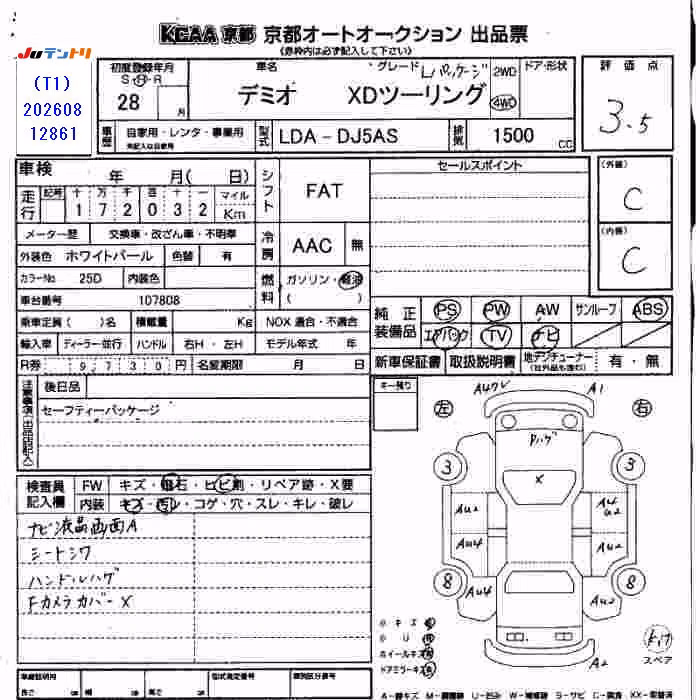 KCAA 京都 京都オートオークション 出品票
(赤枠内は必ず記入して下さい)
JUテントリ
(T1)
202608
12861
初度登録年月
S・H・R
28 月
車名
デミオ
グレード Lパッケージ
XDツーリング
2WD
4WD
ドア・形状
評価点
3.5
車歴
自家用・レンタ・事業用
型式
LDA - DJ5AS
排気
1500 CC
車検 年 月( 日)
走行
記号 十 万 千 百 十 一
1 7 2 0 3 2
マイル
Km
シフト
FAT
セールスポイント
(外装)
C
(内装)
C
メーター歴 交換車・改ざん車・不明車
外装色 ホワイトパール 色替 有
冷房
AAC 無
カラーNo 25D 内装色
燃料
ガソリン・軽油
( )
車台番号 107808
乗車定員 ( )名 積載量 Kg NOX 適合・不適合
純正装備品
PS PW AW サンルーフ ABS
エアバック TV ナビ
輸入車 ディーラー並行 ハンドル 右H・左H モデル年式 年
新車保証書 取扱説明書 地デジチューナー 有・無
(社外品も含む)
R券 9730円 名変期限 月 日
注意事項(出品店記入)
後日品
セーフティーパッケージ
キー残り
左
右
検査員記入欄
FW キズ・飛石・ヒビ割・リペア跡・X要
内装 キズ・汚レ・コゲ・穴・スレ・キレ・破レ
ナビ液晶画面A
シートシワ
ハンドルハゲ
FカメラカバーX
A1
Pハゲ
X
3
3
AU2
AU4
AU2
AU4
AU2
8
8
AU2
AU2
A2
小キズ
小U
ホイールキズ
ドアミラーキズ
スペア
車検証明用
長さ cm 幅 cm 高さ cm
型式指定番号
類別区分番号